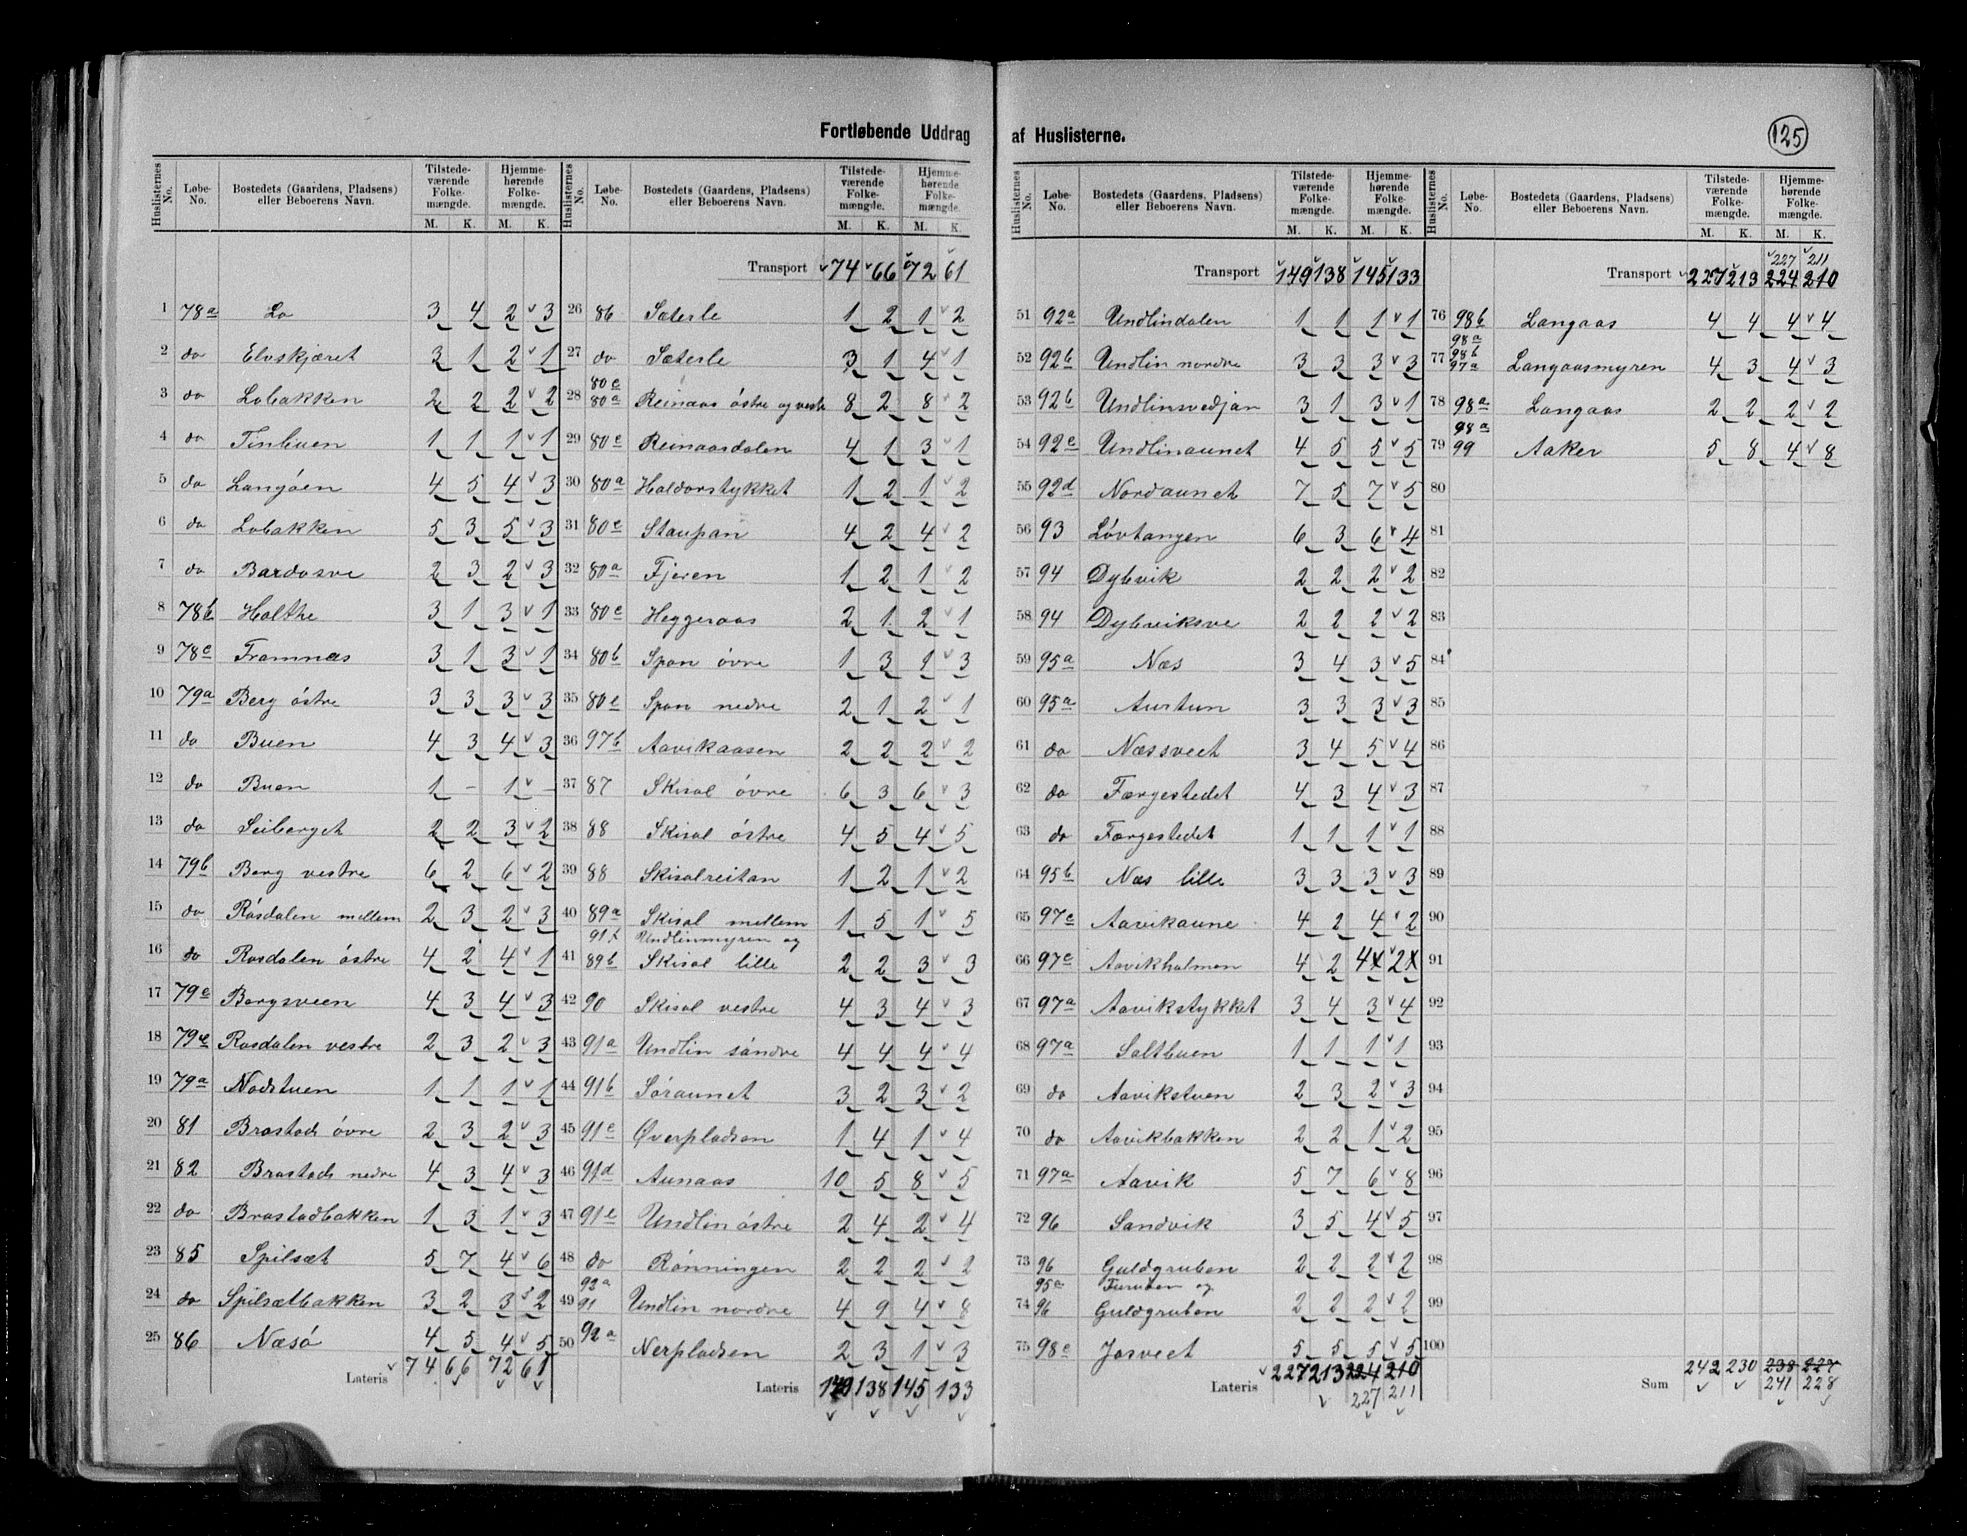 Fortløbende Uddrag af Huslisterne.
125
Huslisternes No. Løbe-No. Bostedets (Gaardens, Pladsens) eller Beboerens Navn. Tilstedeværende Folkemængde. M. K. Hjemmehørende Folkemængde. M. K.
1 78a Lo 3 4 2 3
2 do Elvskjæret 3 1 2 1
3 do Lobakken 2 2 2 2
4 do Tinbuen 1 1 1 1
5 do Langöen 4 5 4 3
6 do Lobakken 5 3 5 3
7 do Bardosve 2 3 2 3
8 78b Holthe 3 1 3 1
9 78c Framnæs 3 1 3 1
10 79a Berg östre 3 3 3 3
11 do Buen 4 3 4 3
12 do Buen 1 - 1 -
13 do Seiberget 2 2 3 2
14 79b Berg vestre 6 2 6 2
15 do Rösdalen mellem 2 3 2 3
16 do Rosdalen östre 4 2 4 1
17 79c Bergsveen 4 3 4 3
18 79c Rosdalen vestre 2 3 2 3
19 79a Nodstuen 1 1 1 1
20 81 Brastad övre 2 3 2 3
21 82 Brastad nedre 4 3 4 3
22 do Brastadbakken 1 3 1 3
23 85 Spilsæt 5 7 4 6
24 do Spilsætbakken 3 2 3 2
25 86 Næsö 4 5 4 5
Lateris 74 66 72 61
Huslisternes No. Løbe-No. Bostedets (Gaardens, Pladsens) eller Beboerens Navn. Tilstedeværende Folkemængde. M. K. Hjemmehørende Folkemængde. M. K.
Transport 74 66 72 61
26 86 Sæterle 1 2 1 2
27 do Sæterle 3 1 4 1
80c
28 80a Reinaas östre og vestre 8 2 8 2
29 80c Reinaasdalen 4 1 3 1
30 80a Haldorstykket 1 2 1 2
31 80c Staupan 4 2 4 2
32 80a Fjeren 1 2 1 2
33 80c Heggeraas 2 1 2 1
34 80b Span övre 1 3 1 3
35 80c Span nedre 2 1 2 1
36 97b Aavikaasen 2 2 2 2
37 87 Skisal övre 6 3 6 3
38 88 Skisal östre 4 5 4 5
39 88 Skisalreitan 1 2 1 2
40 89a Skisal mellem 1 5 1 5
91f Undlinmyren og
41 89b Skisal lille 2 2 3 3
42 90 Skisal vestre 4 3 4 3
43 91a Undlin söndre 4 4 4 4
44 91b Söraunet 3 2 3 2
45 91c Øverpladsen 1 4 1 4
46 91d Aunaas 10 5 8 5
47 91e Undlin östre 2 4 2 4
48 do Rönningen 2 2 2 2
92a
49 91 Undlin nordre 4 9 4 8
50 92a Nerpladsen 2 3 1 3
Lateris 149 138 145 133
Huslisternes No. Løbe-No. Bostedets (Gaardens, Pladsens) eller Beboerens Navn. Tilstedeværende Folkemængde. M. K. Hjemmehørende Folkemængde. M. K.
Transport 149 138 145 133
51 92a Undlindalen 1 1 1 1
52 92b Undlin nordre 3 3 3 3
53 92b Undlinsvedjan 3 1 3 1
54 92c Undlinaunet 4 5 5 5
55 92d Nordaunet 7 5 7 5
56 93 Lövtangen 6 3 6 4
57 94 Dybvik 2 2 2 2
58 94 Dybviksve 2 2 2 2
59 95a Næs 3 4 3 5
60 95a Aurtun 3 3 3 3
61 do Næssveet 3 4 5 4
62 do Færgestedet 4 3 4 3
63 do Færgestedet 1 1 1 1
64 95b Næs lille 3 3 3 3
65 97c Aavikaune 4 2 4 2
66 97c Aavikholmen 4 2 4x 2x
67 97a Aavikstykket 3 4 3 4
68 97a Saltbuen 1 1 1 1
69 do Aavikstuen 2 3 2 3
70 do Aavikbakken 2 2 1 2
71 97a Aavik 5 7 6 8
72 96 Sandvik 3 5 4 5
73 96 Guldgruben 2 2 2 2
95a Furuben og
74 96 Guldgruben 2 2 2 2
75 98c Josveet 5 5 5 5
Lateris 227 213 224 210
227 211
Huslisternes No. Løbe-No. Bostedets (Gaardens, Pladsens) eller Beboerens Navn. Tilstedeværende Folkemængde. M. K. Hjemmehørende Folkemængde. M. K.
227 211
Transport 227 213 224 210
76 98b Langaas 4 4 4 4
98a
98b
77 97a Langaasmyren 4 3 4 3
78 98a Langaas 2 2 2 2
98a
79 99 Aaker 5 8 4 8
80
81
82
83
84
85
86
87
88
89
90
91
92
93
94
95
96
97
98
99
100
Sum 242 230 238 227
241 228